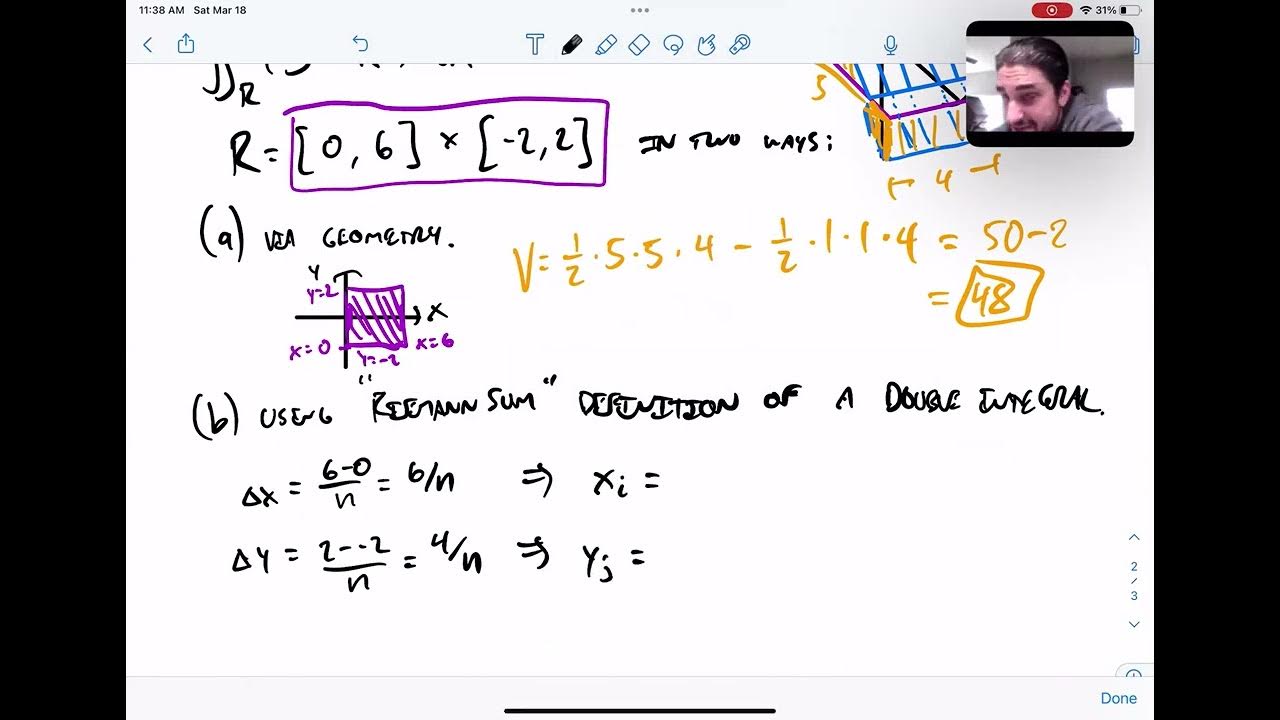 11:38 AM Sat Mar 18
31%
T
∬R
R = [0, 6] × [-2, 2] IN TWO WAYS:
5
4
(a) VIA GEOMETRY.
V = 1/2 · 5 · 5 · 4 - 1/2 · 1 · 1 · 4 = 50 - 2
= 48
Y
y=2
X
x=0
y=-2
x=6
(b) USING "RIEMANN SUM" DEFINITION OF A DOUBLE INTEGRAL.
Δx = 6-0/n = 6/n ⇒ xi =
Δy = 2--2/n = 4/n ⇒ yj =
2
/
3
Done